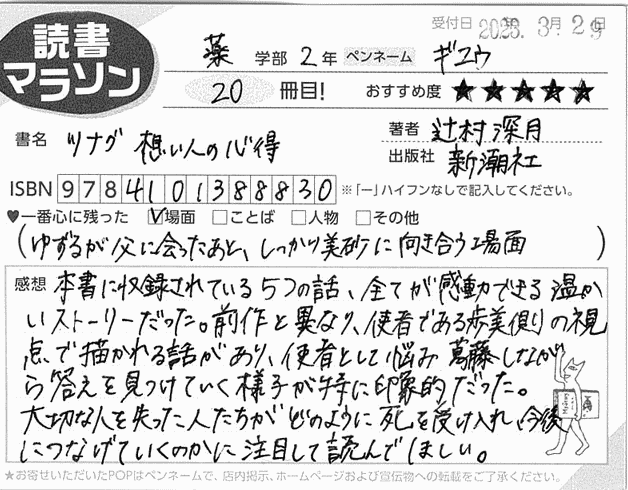 読書
マラソン
受付日 2023. 3月29日
薬 学部 2年 ペンネーム ギユウ
20 冊目! おすすめ度 ★★★★★
書名 ツナグ 想い人の心得
著者 辻村深月
出版社 新潮社
ISBN 9784101388830 ※「ー」ハイフンなしで記入してください。
♥一番心に残った ☑場面 □ことば □人物 □その他
(ゆずるが父に会ったあと、しっかり美砂に向き合う場面)
感想 本書に収録されている5つの話、全てが感動できる温か
いストーリーだった。前作と異なり、使者である歩美側の視
点で描かれる話があり、使者として悩み葛藤しなが
ら答えを見つけていく様子が特に印象的だった。
大切な人を失った人たちがどのように死を受け入れ、今後
につなげていくのかに注目して読んでほしい。
★お寄せいただいたPOPはペンネームで、店内掲示、ホームページおよび宣伝物への転載をご了承ください。